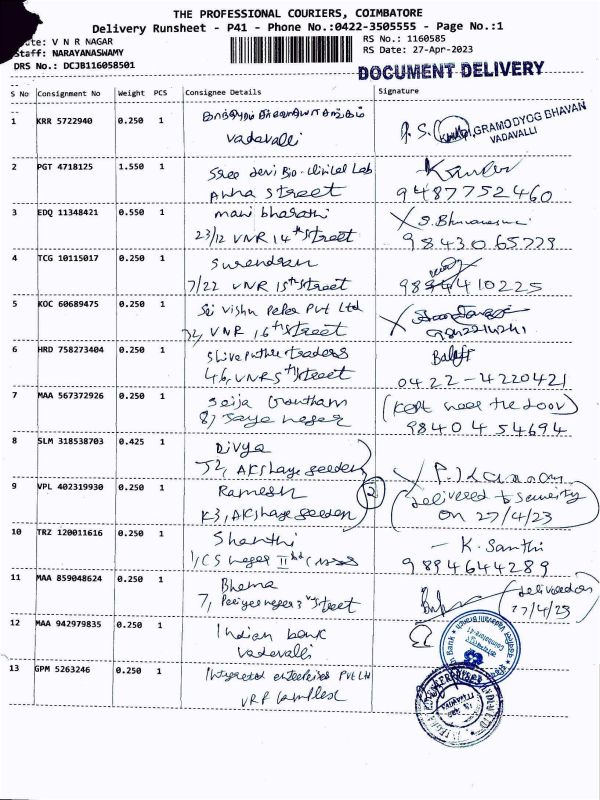 THE PROFESSIONAL COURIERS, COIMBATORE
Delivery Runsheet - P41 - Phone No.:0422-3505555 - Page No.:1
Route: V N R NAGAR
Staff: NARAYANASWAMY
DRS No.: DCJB116058501
RS No.: 1160585
RS Date: 27-Apr-2023
DOCUMENT DELIVERY
S No Consignment No Weight PCS Consignee Details Signature
1 KRR 5722940 0.250 1
Vadavalli
GRAMODYOG BHAVAN
VADAVALLI
2 PGT 4718125 1.550 1 Sree Devi Bio-clinical Lab
Anna Street
9487752460
3 EDQ 11348421 0.550 1 mani bharathi
23/12 VNR 14th Street
98430 65779
4 TCG 10115017 0.250 1 Surendran
7/22 VNR 15th Street
5 KOC 60689475 0.250 1 Sri Vishnu Paper Pvt Ltd
VNR 16th Street
6 HRD 758273404 0.250 1 traders
46, VNR 5th Street
0422-4220421
7 MAA 567372926 0.250 1
8, Jaya nagar
(kept near the door)
98404 54694
8 SLM 318538703 0.425 1 Divya
52, Akshaya
9 VPL 402319930 0.250 1 Ramesh
K3, Akshaya
2
(delivered to security
on 27/4/23)
10 TRZ 120011616 0.250 1 Shanthi
1, CS nagar IInd cross
- K. Santhi
9894644289
11 MAA 859048624 0.250 1 Bhema
7, Periyar nagar 3rd Street
27/4/23)
12 MAA 942979835 0.250 1 Indian bank
Vadavalli
13 GPM 5263246 0.250 1 Integrated enterprises Pvt Ltd
VRP Complex